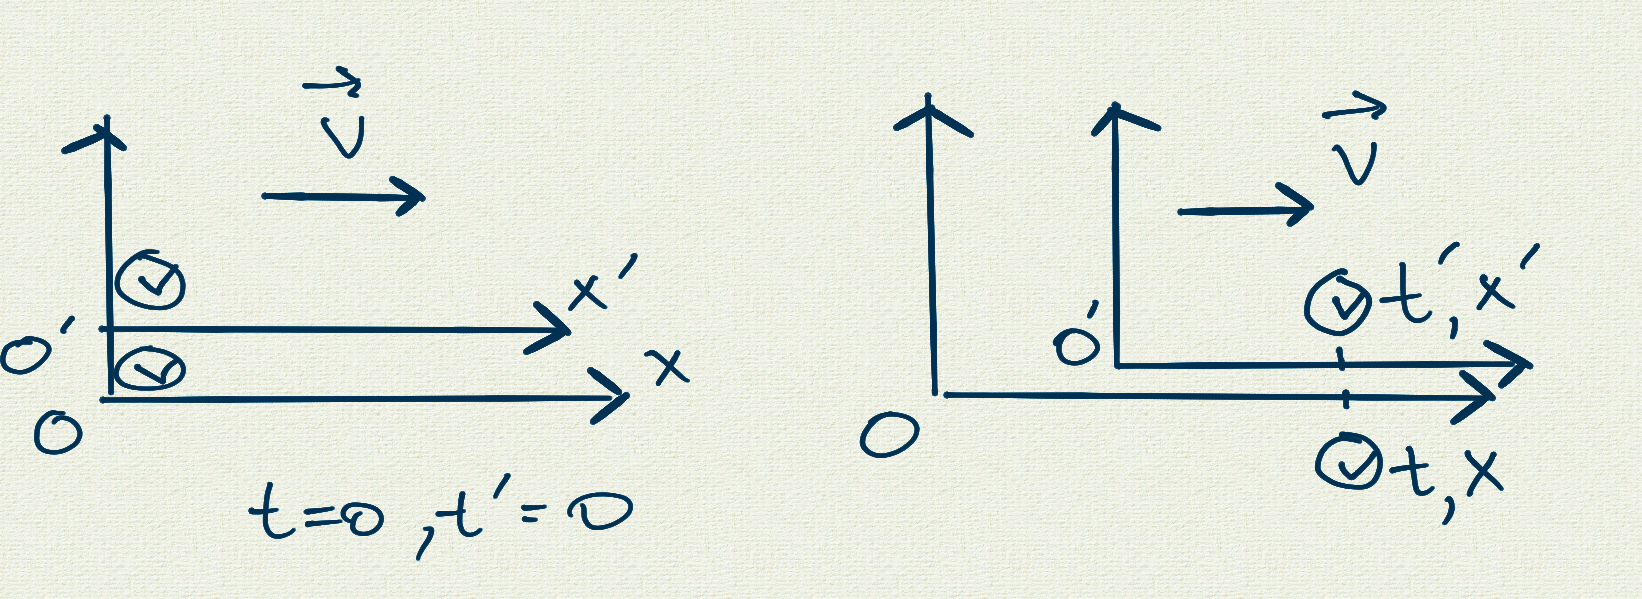 v⃗
x′
O′
x
O
t=0, t′=0
v⃗
t′, x′
O′
O
t, x